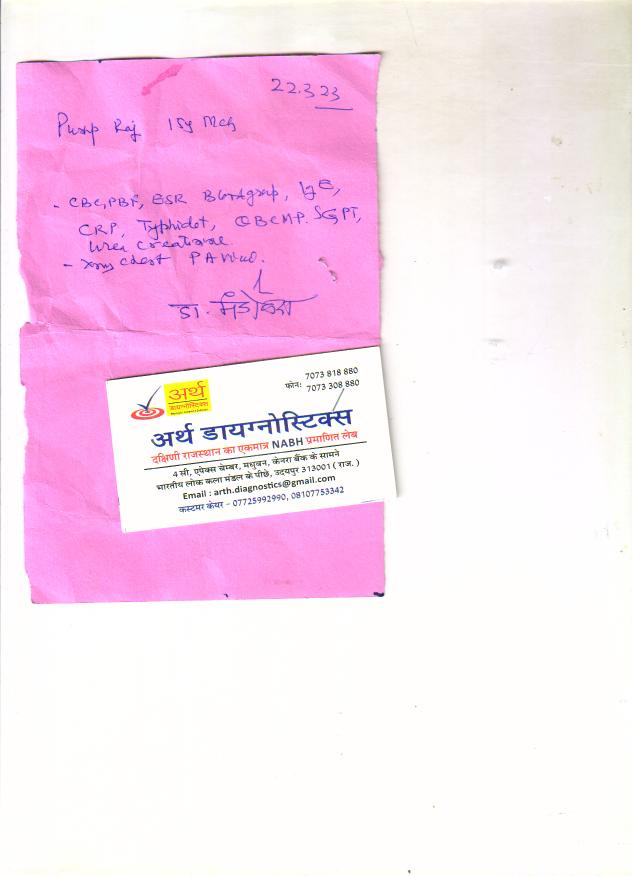 22.3.23
Pusp Raj 15y Mch
- CBC, PBF, ESR Blood group, IgE,
CRP, Typhidot, QBCMP. SGPT,
Urea Creatinine
- Xray chest PA View.
डा. मंडोवरा
अर्थ
डायग्नोस्टिक्स
7073 818 880
फोन: 7073 308 880
अर्थ डायग्नोस्टिक्स
दक्षिणी राजस्थान का एकमात्र NABH प्रमाणित लेब
4 सी, एपेक्स चेम्बर, मधुबन, केनरा बैंक के सामने
भारतीय लोक कला मंडल के पीछे, उदयपुर 313001 ( राज. )
Email : arth.diagnostics@gmail.com
कस्टमर केयर - 07725992990, 08107753342